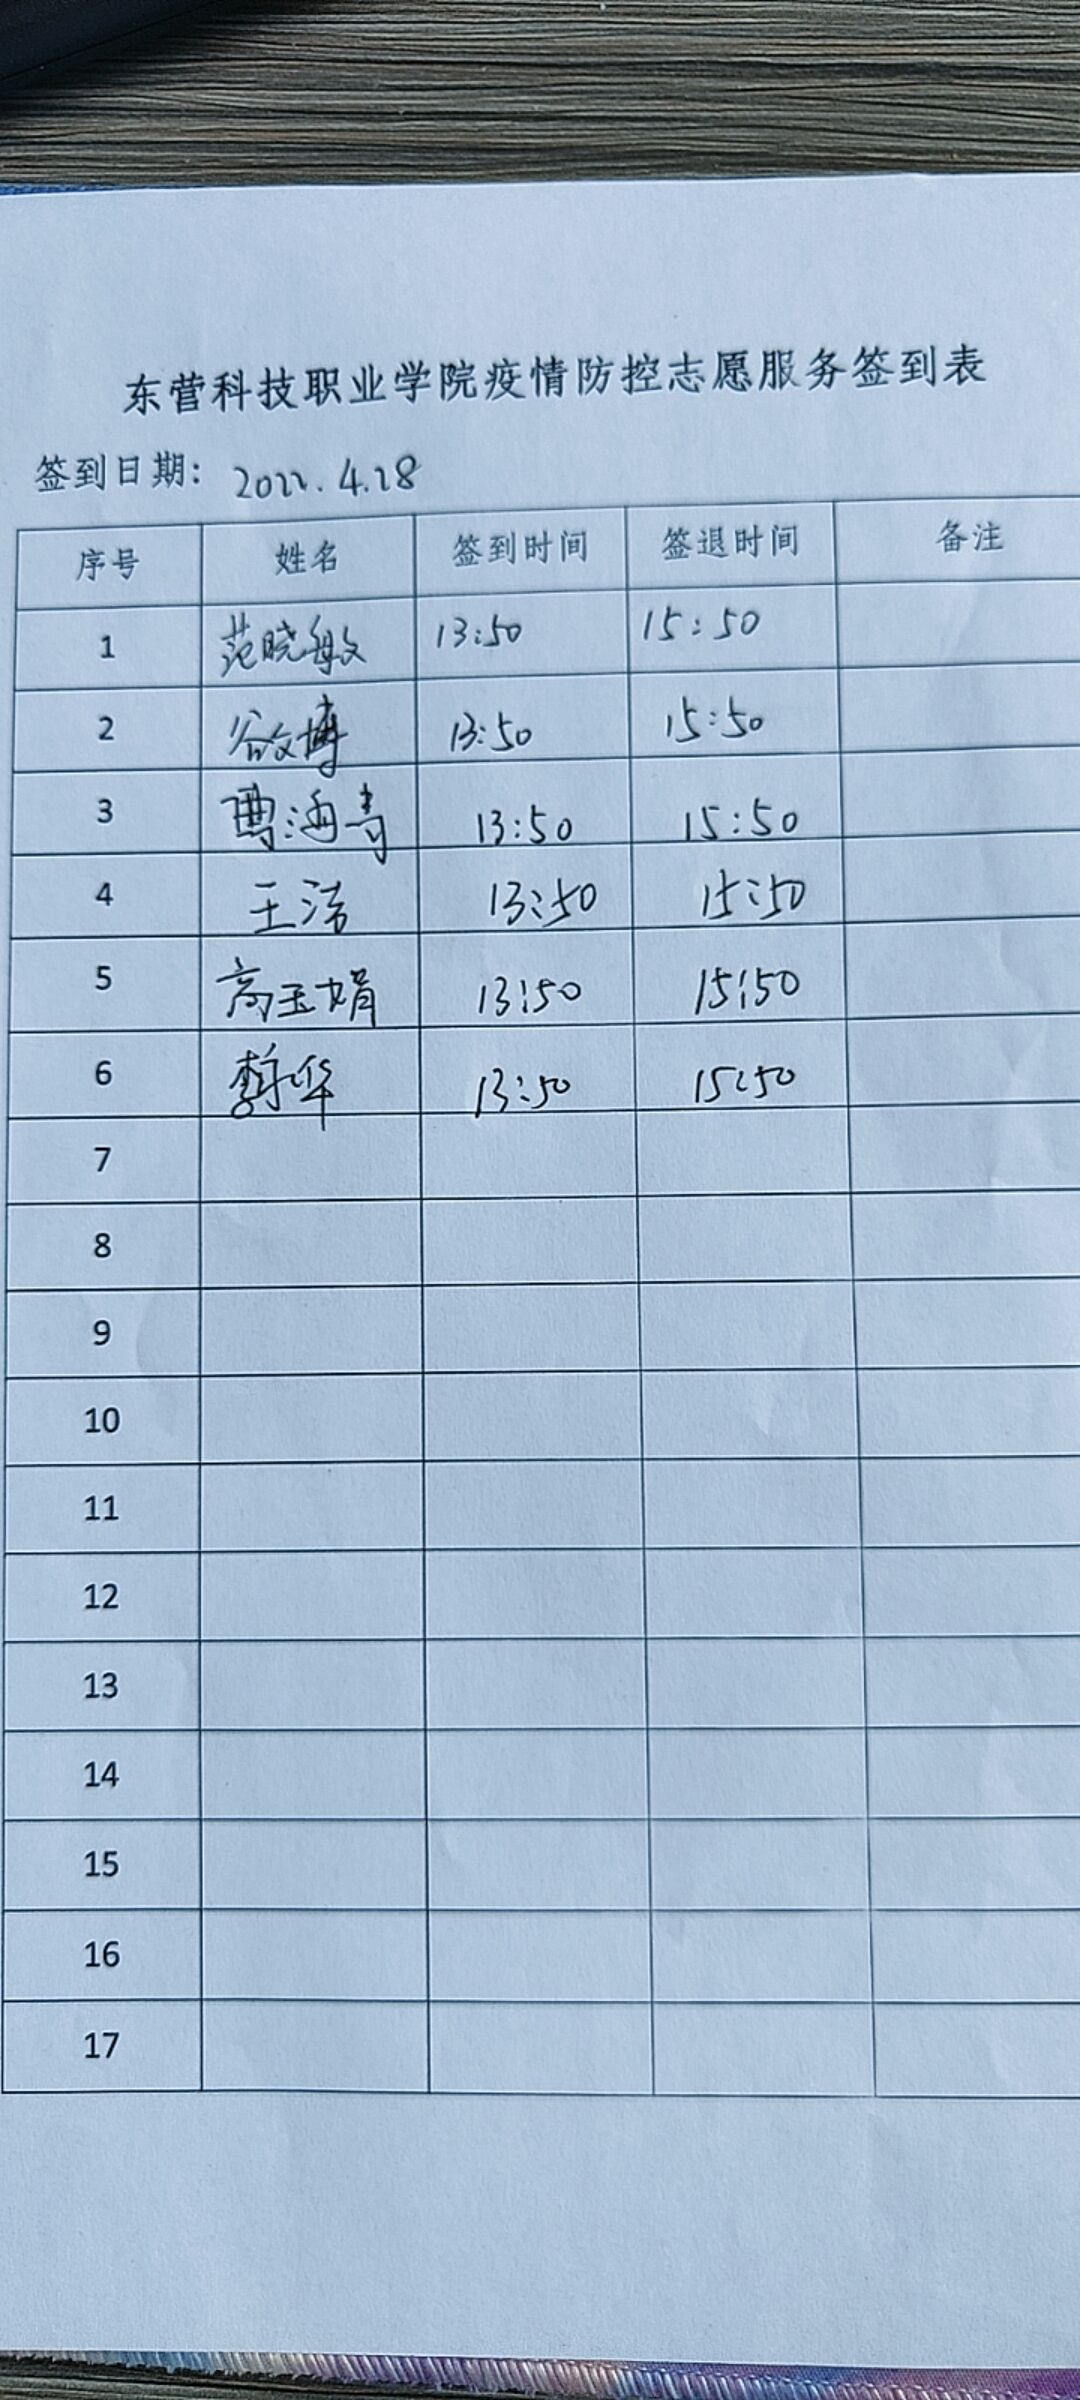 东营科技职业学院疫情防控志愿服务签到表
签到日期: 2022.4.28
序号 姓名 签到时间 签退时间 备注
1 范晓敏 13:50 15:50
2 谷文博 13:50 15:50
3 曹海青 13:50 15:50
4 王洁 13:50 15:50
5 高玉娟 13:50 15:50
6 华 13:50 15:50
7
8
9
10
11
12
13
14
15
16
17